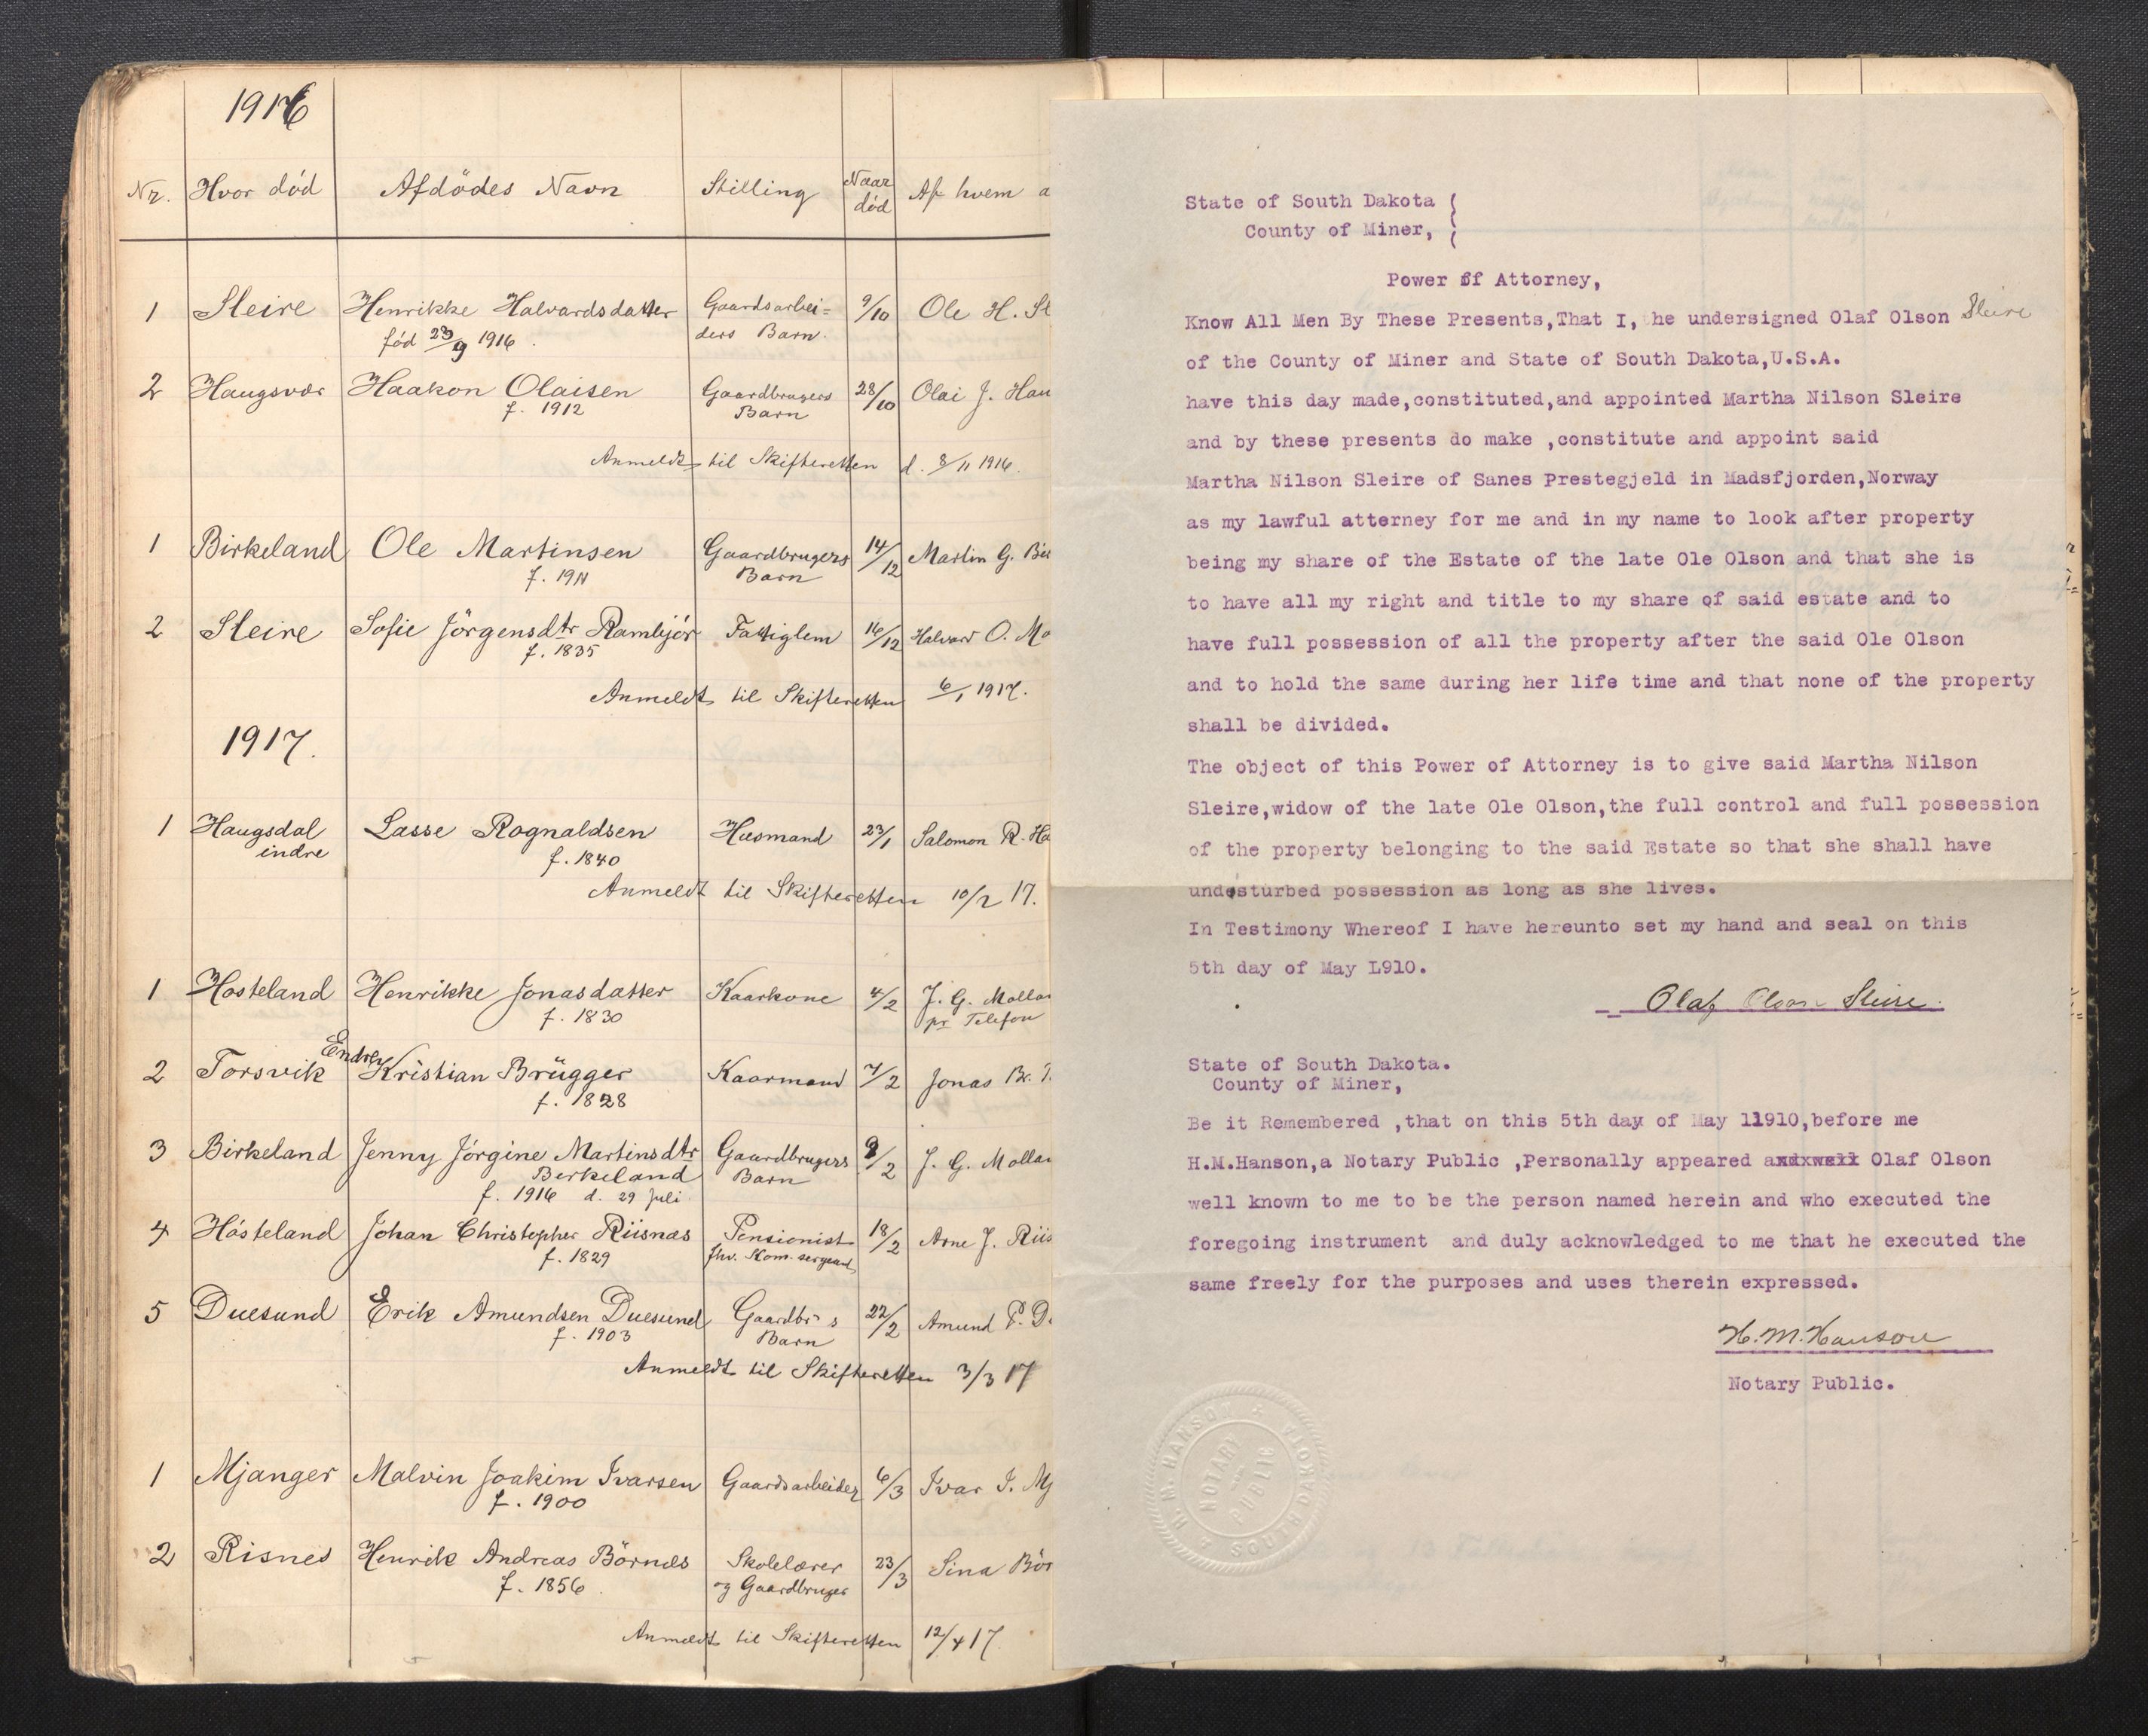 1916
Nr. Hvor död Afdödes Navn Stilling Naar död Af hvem a
1 Sleire Henrikke Halvardsdatter Gaardsarbei= 9/10 Ole H. Sl
född 23/9 1916. ders Barn.
2 Haugsvær Haakon Olaisen Gaardbrugers 28/10 Olai J. Hau
f. 1912 Barn
Anmeldt til Skifteretten d. 8/11 1916.
1 Birkeland Ole Martinsen Gaardbrugers 14/12 Martin G. Bir
f. 1911 Barn
2 Sleire Sofie Jörgensdtr Rambjör Fattiglem 16/12 Halvard O. Mo
f. 1835
Anmeldt til Skifteretten 6/1 1917.
1917.
1 Haugsdal Lasse Rognaldsen Husmand 23/1 Salomon R. Ha
indre f. 1840
Anmeldt til Skifteretten 10/2 17.
1 Hosteland Henrikke Jonasdatter Kaarkone 4/2 J. G. Mollan
f. 1830 pr Telefon
Endre
2 Torsvik Kristian Brügger Kaarmand 7/2 Jonas Br. T
f. 1828
3 Birkeland Jenny Jörgine Martinsdtr Gaardbrugers 9/2 J. G. Mollan
Birkeland Barn
f. 1916 d. 29 juli
4 Hósteland Johan Christopher Riisnæs Pensionist 18/2 Arne J. Riis
f. 1829 fhv. Kom. sergeant
5 Duesund Erik Amundsen Duesund Gaardbr's 22/2 Amund P. D
f. 1903 Barn
Anmeldt til Skifteretten 3/3 17
1 Mjanger Malvin Joakim Ivarsen Gaardsarbeider 6/3 Ivar I. Mj
f. 1900
2 Risnes Henrik Andreas Börnæs Skolelærer 23/3 Sina Bör
f. 1856. og Gaardbruger
Anmeldt til Skifteretten 12/4 17.
State of South Dakota (
County of Miner, (
Power of Attorney,
Know All Men By These Presents,That I, he undersigned Olaf Olson Sleire
of the County of Miner and State of South Dakota,U.S.A.
have this day made,constituted,and appointed Martha Nilson Sleire
and by these presents do make ,constitute and appoint said
Martha Nilson Sleire of Sanes Prestegjeld in Madsfjorden,Norway
as my lawful atterney for me and in my name to look after property
being my share of the Estate of the late Ole Olson and that she is
to have all my right and title to my share of said estate and to
have full possession of all the property after the said Ole Olson
and to hold the same during her life time and that none of the property
shall be divided.
The object of this Power of Attorney is to give said Martha Nilson
Sleire,widow of the late Ole Olson,the full control and full possession
of the property belonging to the said Estate so that she shall have
undesturbed possession as long as she lives.
In Testimony Whereof I have hereunto set my hand and seal on this
5th day of May L910.
Olaf Olson Sleire.
State of South Dakota.
County of Miner,
Be it Remembered ,that on this 5th day of May 11910,before me
H.M.Hanson,a Notary Public ,Personally appeared andxwell Olaf Olson
well known to me to be the person named herein and who executed the
foregoing instrument and duly acknowledged to me that he executed the
same freely for the purposes and uses therein expressed.
H. M. Hanson
Notary Public.
H. M. HANSON
NOTARY
PUBLIC
SOUTH DAKOTA